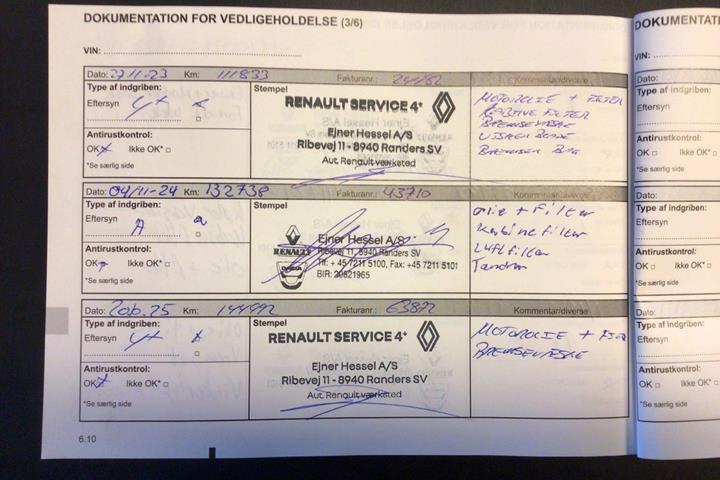 DOKUMENTATION FOR VEDLIGEHOLDELSE (3/6)
VIN:
Dato: 27/11-23 Km: 111833 Fakturanr.: Kommentar/diverse
Type af indgriben:
Eftersyn
Antirustkontrol:
OK Ikke OK*
*Se særlig side
Stempel
RENAULT SERVICE 4*
Ejner Hessel A/S
Ribevej 11 - 8940 Randers SV
Aut. Renault værksted
MOTOROLIE + FILTER
FILTER
BREMSEVÆSKE
Dato: 04/11-24 Km: 132738 Fakturanr.: 43710 Kommentar/diverse
Type af indgriben:
Eftersyn A
Antirustkontrol:
OK Ikke OK*
*Se særlig side
Stempel
RENAULT
DACIA
Ejner Hessel A/S
Ribevej 11, 8940 Randers SV
Tlf.: + 45 7211 5100, Fax: +45 7211 5101
olie + filter
Kabine filter
Luftfilter
Dato: Km: Fakturanr.: 63872 Kommentar/diverse
Type af indgriben:
Eftersyn
Antirustkontrol:
OK Ikke OK*
*Se særlig side
Stempel
RENAULT SERVICE 4*
Ejner Hessel A/S
Ribevej 11 - 8940 Randers SV
Aut. Renault værksted
MOTOROLIE +
BREMSEVÆSKE
6.10
DOKUMENTATI
VIN:
Dato:
Type af indgribe
Eftersyn
Antirustkontrol:
OK Ikke OK*
*Se særlig side
Dato:
Type af indgriben
Eftersyn
Antirustkontrol:
OK Ikke OK*
*Se særlig side
Dato:
Type af indgriben:
Eftersyn
Antirustkontrol:
OK Ikke OK*
*Se særlig side